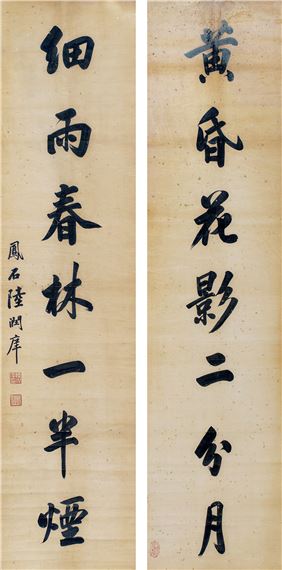 黄昏花影二分月
細雨春林一半煙
鳳石陸潤庠